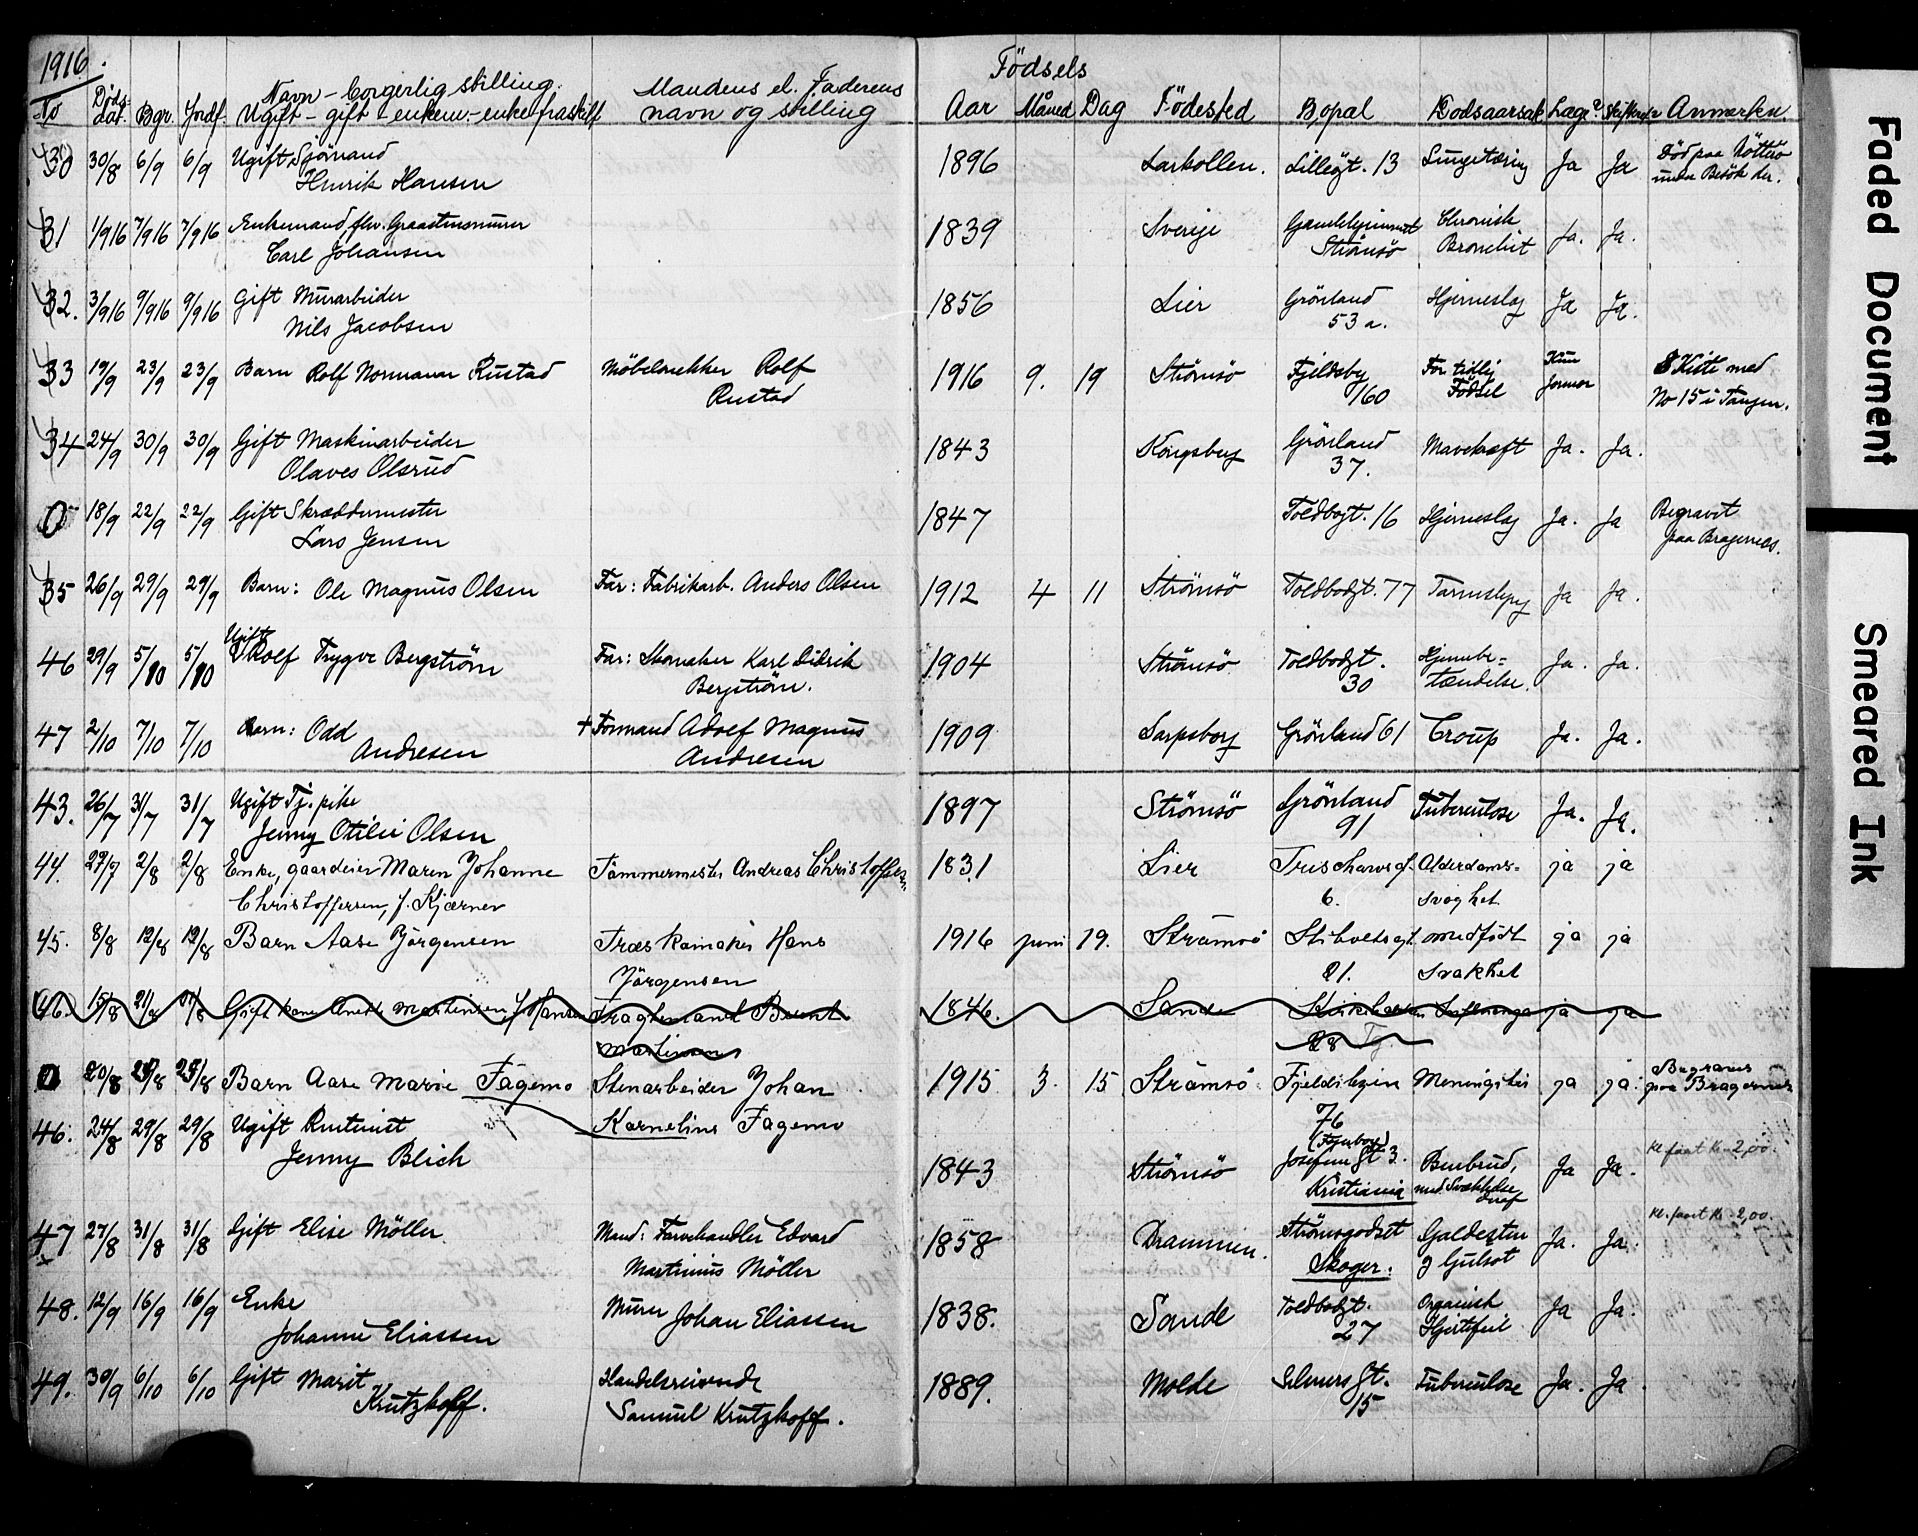 1916.
Födsels
No Döds dat. Bgr. Jordf. Navn - borgerlig stilling. Ugift - gift - enkem. - enke - fraskilt Mandens el. Faderens navn og stilling Aar Måned Dag Födested Bopal Dodsaarsak Læge? Anmerkn
30 30/8 6/9 6/9 Ugift Sjömand 1896 Larkollen. Lillegt. 13 Lungetæring Ja Ja Död paa Nötterö
Henrik Hansen under Besök der.
31 1/9 16 7/9 16 7/9 16 Enkemand, fhv. Graastensmurer 1839 Sverige Chronisk Ja. Ja.
Carl Johansen Strömsö Bronchit
32. 3/9 16 9/9 16 9/9 16 Gift Murarbeider 1856 Lier Grönland Hjerneslag Ja Ja.
Nils Jacobsen 53 a.
33 19/9 23/9 23/9 Barn Rolf Normanar Rustad Möbelsnekker Rolf 1916 9. 19 Strömsö Fjeldsby For tidlig Kun Kiste med
Rustad 160 Födsel Jormor No 15 i Tangen.
34 24/9 30/9 30/9 Gift Maskinarbeider 1843 Kongsberg Grönland Mavekræft Ja. Ja.
Olaves Olsrud 37.
0 18/9 22/9 22/9 Gift Skræddermester 1847 Toldbogt. 16 Hjerneslag Ja. Ja Begravet
Lars Jensen paa Bragernes.
35 26/9 29/9 29/9 Barn: Ole Magnus Olsen Far: Fabrikarb. Anders Olsen 1912 4 11 Strömsö Toldbodgt. 77 Ja Ja.
Ugift
46 29/9 5/10 5/10 Rolf Trygve Bergström Far: Skomaker Karl Didrik 1904 Strömsö Toldbodgt. Hjernebe= Ja. Ja.
Bergström. 30 tændelse.
47 2/10 7/10 7/10 Barn: Odd + Formand Adolf Magnus 1909 Sarpsborg Grönland 61 Croup Ja. Ja.
Andresen Andresen
43. 26/7 31/7 31/7 Ugift Tj. pike 1897 Strömsö Grönland Tuberculose Ja. Ja.
Jenny Otilie Olsen 91
44. 27/7 2/8 2/8 Enke, gaardeier Maren Johanne Tömmermester Andreas Christoffersen 1831 Lier Alderdoms= ja ja
Christoffersen, f. Kjærner 6. svaghet
45. 8/8 12/8 12/8 Barn Aase Jörgensen Træskomaker Hans 1916 juni 19. Strömsö medfödt ja ja
Jörgensen 21. svakhet
46. 15/8 21/8 21/8 Gift kone Anette Martinsen, f. Hansen Fragtemand Bernt 1846. Sande Influenga ja ja
Martinsen 28
0 20/8 25/8 25/8 Barn Aase Marie Fagemo Stenarbeider Johan 1915 3. 15 Strömsö Meningitis ja ja. Begraves paa Bragernes
Kornelius Fagemo 76
46. 24/8 29/8 29/8 Ugift Rentenist
Jenny Blich 1843 Strömsö Josefine Gt 3. Benbrud, Ja Ja. Kl faat Kr 2,00.
Kristiania med Svækkelse deraf
47 27/8 31/8 31/8 Gift Elise Möller Mand: Farvehandler Edvard 1858 Drammen. Strömsgodset Galdesten Ja. Ja Kl. faaet Kr 2,00.
Martinius Möller Skoger. og Gulsot
48. 12/9 16/9 16/9 Enke Murer Johan Eliassen 1838. Sande Toldbodgt. Organisk Ja Ja.
Johanne Eliassen 27 Hjertefeil
49. 30/9 6/10 6/10 Gift Marit Handelsreisende 1889. Molde Tuberculose Ja. Ja
Krutzkoff. Samuel Krutzkoff. 15
Faded Document
Smeared Ink